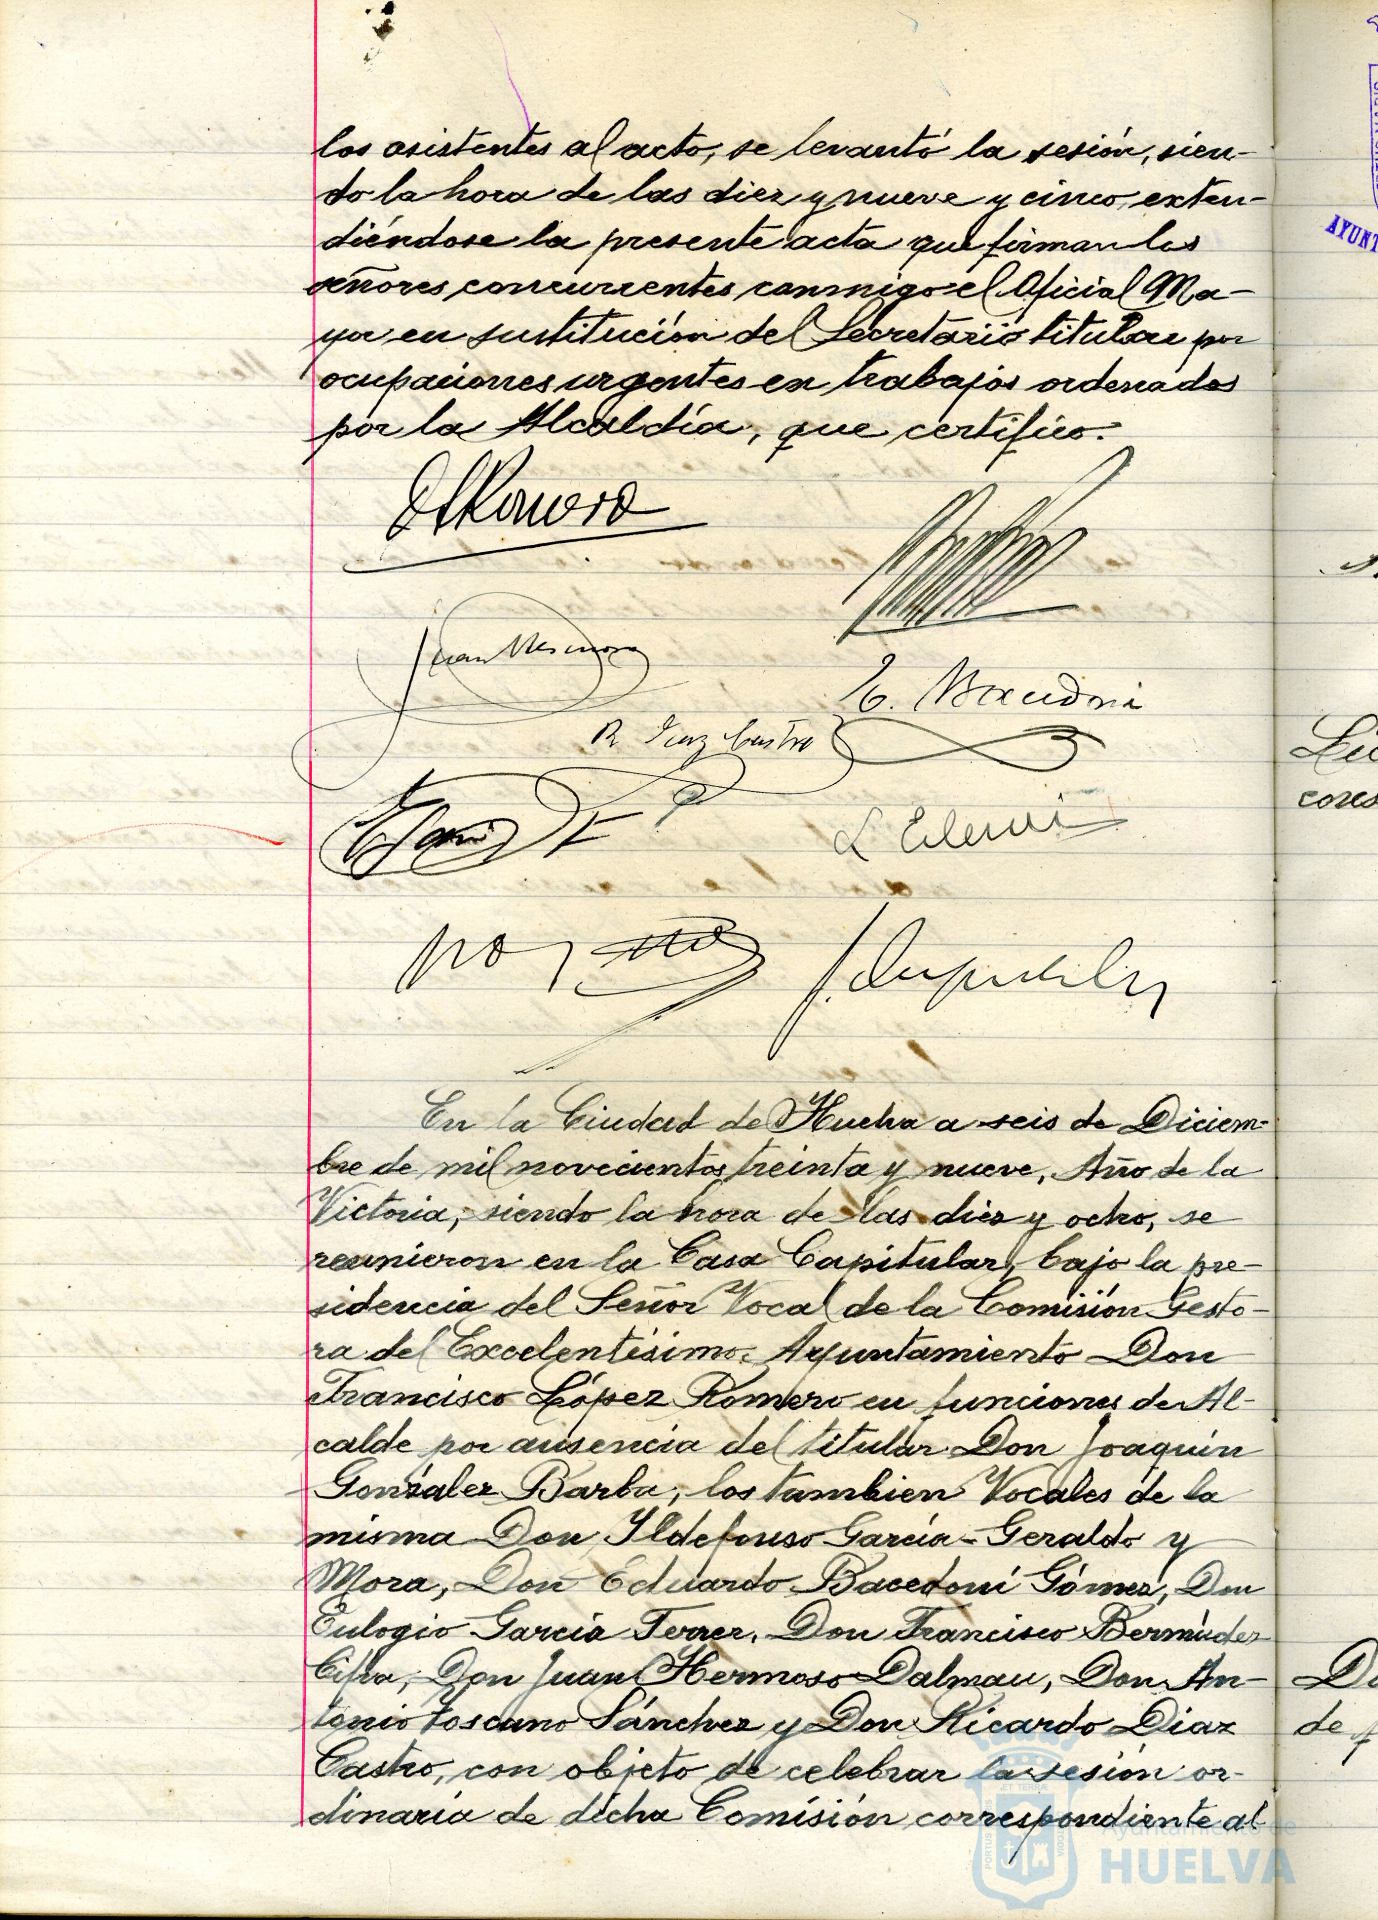 los asistentes al acto, se levantó la sesión, sien-
do la hora de las diez y nueve y cinco, exten-
diéndose la presente acta que firman los
señores concurrentes conmigo el Oficial Ma-
yor en sustitución del Secretario titular por
ocupaciones urgentes en trabajos ordenados
por la Alcaldía, que certifico.
Juan Hermoso
E. Bacedoni
R Diaz Castro
En la Ciudad de Huelva a seis de Diciem-
bre de mil novecientos treinta y nueve, Año de la
Victoria, siendo la hora de las diez y ocho, se
reunieron en la Casa Capitular, bajo la pre-
sidencia del Señor Vocal de la Comisión Gesto-
ra del Excelentísimo Ayuntamiento Don
Francisco López Romero en funciones de Al-
calde por ausencia del titular Don Joaquín
González Barba, los tambien Vocales de la
misma Don Ildefonso García-Geraldo y
Mora, Don Eduardo Bacedoni Gómez, Don
Eulogio García Ferrer, Don Francisco Bermúdez
Don Juan Hermoso Dalmau, Don An-
tonio Toscano Sánchez y Don Ricardo Díaz
Castro, con objeto de celebrar la sesión or-
dinaria de dicha Comisión correspondiente al
Ayuntamiento de
HUELVA